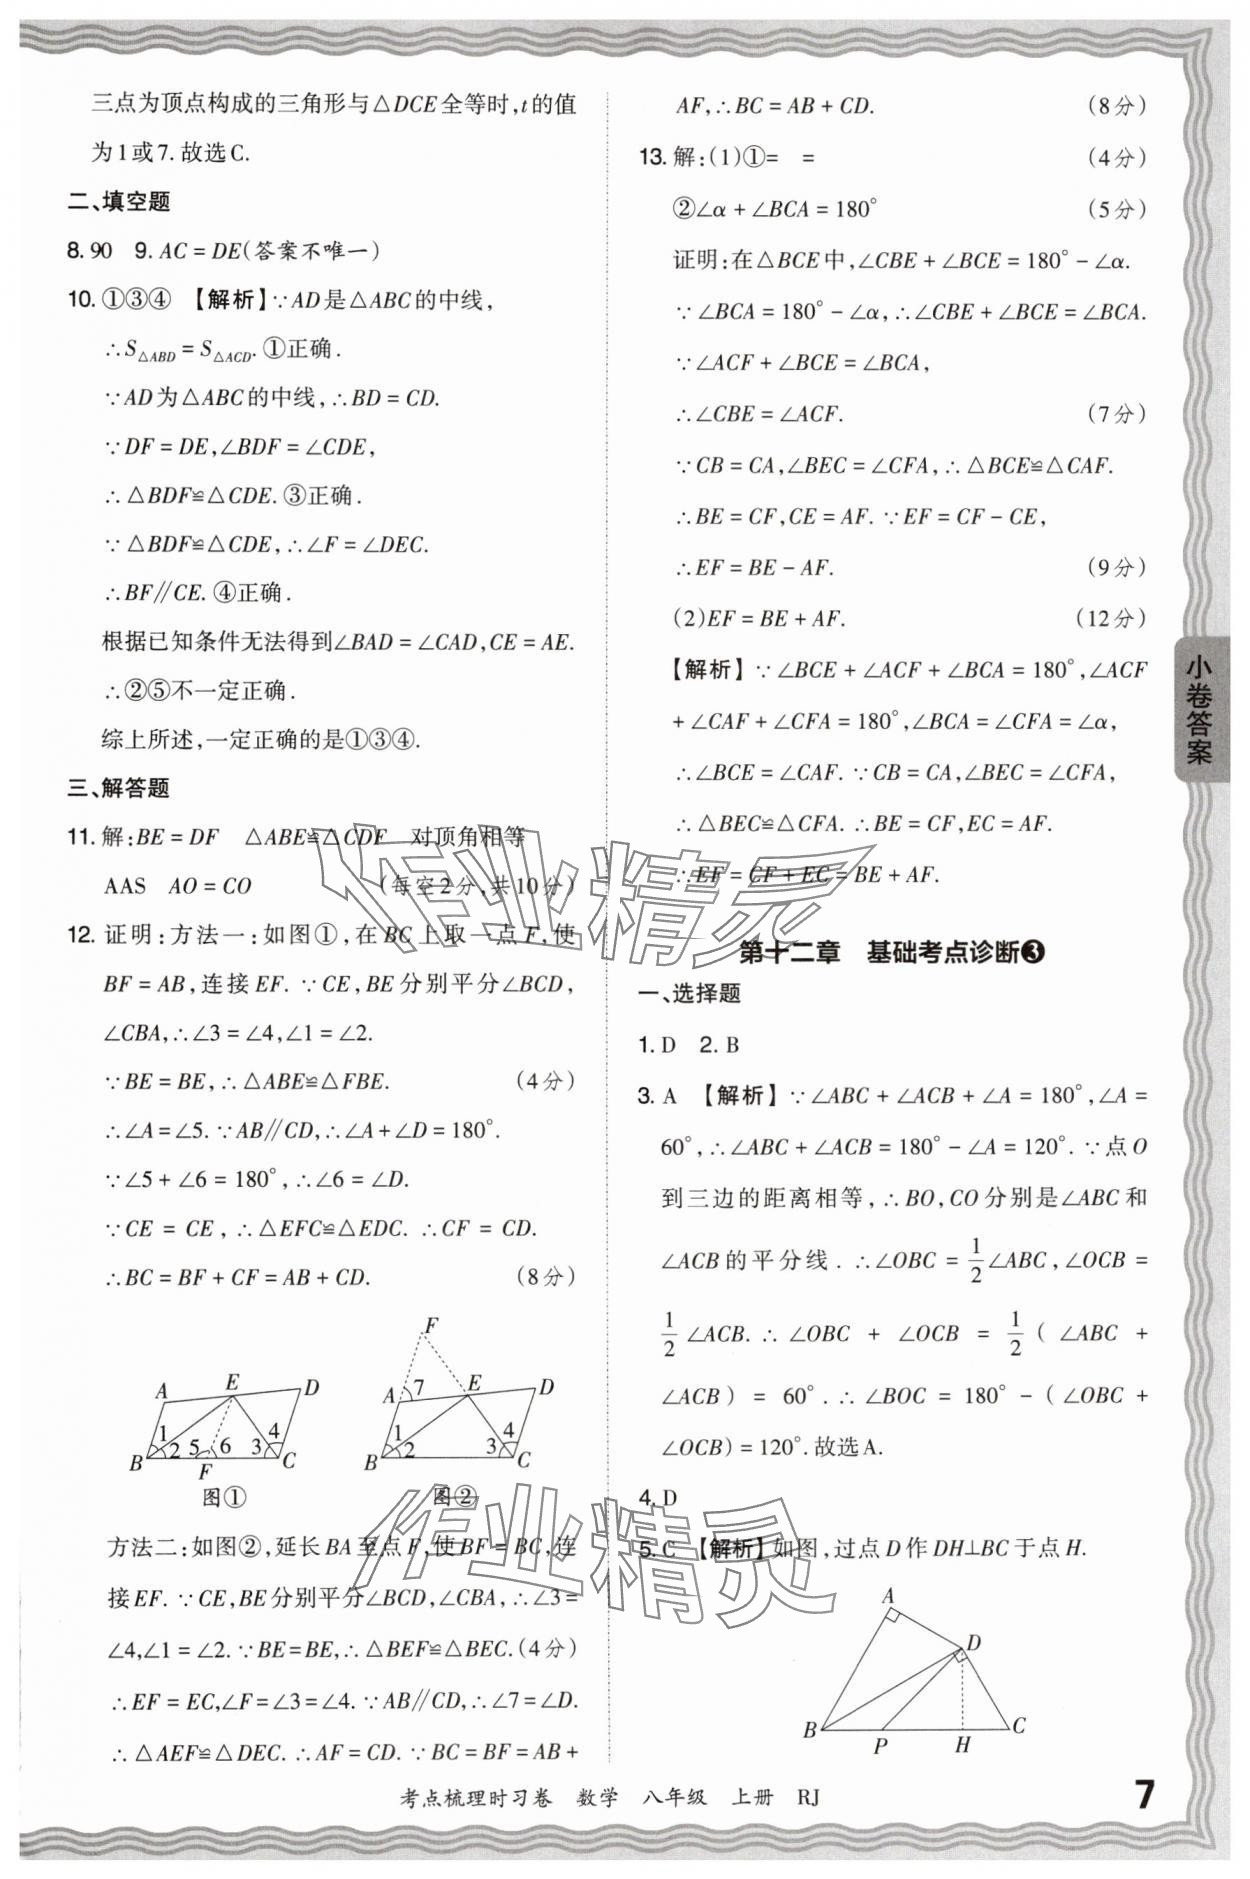 三点为顶点构成的三角形与△DCE全等时,t的值
为1或7.故选C.
二、填空题
8.90 9.AC=DE(答案不唯一)
10.①③④ 【解析】∵AD是△ABC的中线,
∴S△ABD=S△ACD.①正确.
∵AD为△ABC的中线,∴BD=CD.
∵DF=DE,∠BDF=∠CDE,
∴△BDF≌△CDE.③正确.
∵△BDF≌△CDE,∴∠F=∠DEC.
∴BF∥CE.④正确.
根据已知条件无法得到∠BAD=∠CAD,CE=AE.
∴②⑤不一定正确.
综上所述,一定正确的是①③④.
三、解答题
11.解:BE=DF △ABE≌△CDF 对顶角相等
AAS AO=CO (每空2分,共10分)
12.证明:方法一:如图①,在BC上取一点F,使
BF=AB,连接EF.∵CE,BE分别平分∠BCD,
∠CBA,∴∠3=∠4,∠1=∠2.
∵BE=BE,∴△ABE≌△FBE. (4分)
∴∠A=∠5.∵AB∥CD,∴∠A+∠D=180°.
∵∠5+∠6=180°,∴∠6=∠D.
∵CE=CE,∴△EFC≌△EDC.∴CF=CD.
∴BC=BF+CF=AB+CD. (8分)
A E D B 1 2 5 6 3 4 F C
图①
F A 7 E D B 1 2 3 4 C
图②
方法二:如图②,延长BA至点F,使BF=BC,连
接EF.∵CE,BE分别平分∠BCD,∠CBA,∴∠3=
∠4,∠1=∠2.∵BE=BE,∴△BEF≌△BEC.(4分)
∴EF=EC,∠F=∠3=∠4.∵AB∥CD,∴∠7=∠D.
∴△AEF≌△DEC.∴AF=CD.∵BC=BF=AB+
AF,∴BC=AB+CD. (8分)
13.解:(1)①= = (4分)
②∠α+∠BCA=180° (5分)
证明:在△BCE中,∠CBE+∠BCE=180°-∠α.
∵∠BCA=180°-∠α,∴∠CBE+∠BCE=∠BCA.
∵∠ACF+∠BCE=∠BCA,
∴∠CBE=∠ACF. (7分)
∵CB=CA,∠BEC=∠CFA,∴△BCE≌△CAF.
∴BE=CF,CE=AF.∵EF=CF-CE,
∴EF=BE-AF. (9分)
(2)EF=BE+AF. (12分)
【解析】∵∠BCE+∠ACF+∠BCA=180°,∠ACF
+∠CAF+∠CFA=180°,∠BCA=∠CFA=∠α,
∴∠BCE=∠CAF.∵CB=CA,∠BEC=∠CFA,
∴△BEC≌△CFA.∴BE=CF,EC=AF.
∴EF=CF+EC=BE+AF.
第十二章 基础考点诊断❸
一、选择题
1.D 2.B
3.A 【解析】∵∠ABC+∠ACB+∠A=180°,∠A=
60°,∴∠ABC+∠ACB=180°-∠A=120°.∵点O
到三边的距离相等,∴BO,CO分别是∠ABC和
∠ACB的平分线.∴∠OBC=1/2∠ABC,∠OCB=
1/2∠ACB.∴∠OBC+∠OCB=1/2(∠ABC+
∠ACB)=60°.∴∠BOC=180°-(∠OBC+
∠OCB)=120°.故选A.
4.D
5.C 【解析】如图,过点D作DH⊥BC于点H.
A D B P H C
小卷答案
考点梳理时习卷 数学 八年级 上册 RJ
7
作业精灵
作业精灵